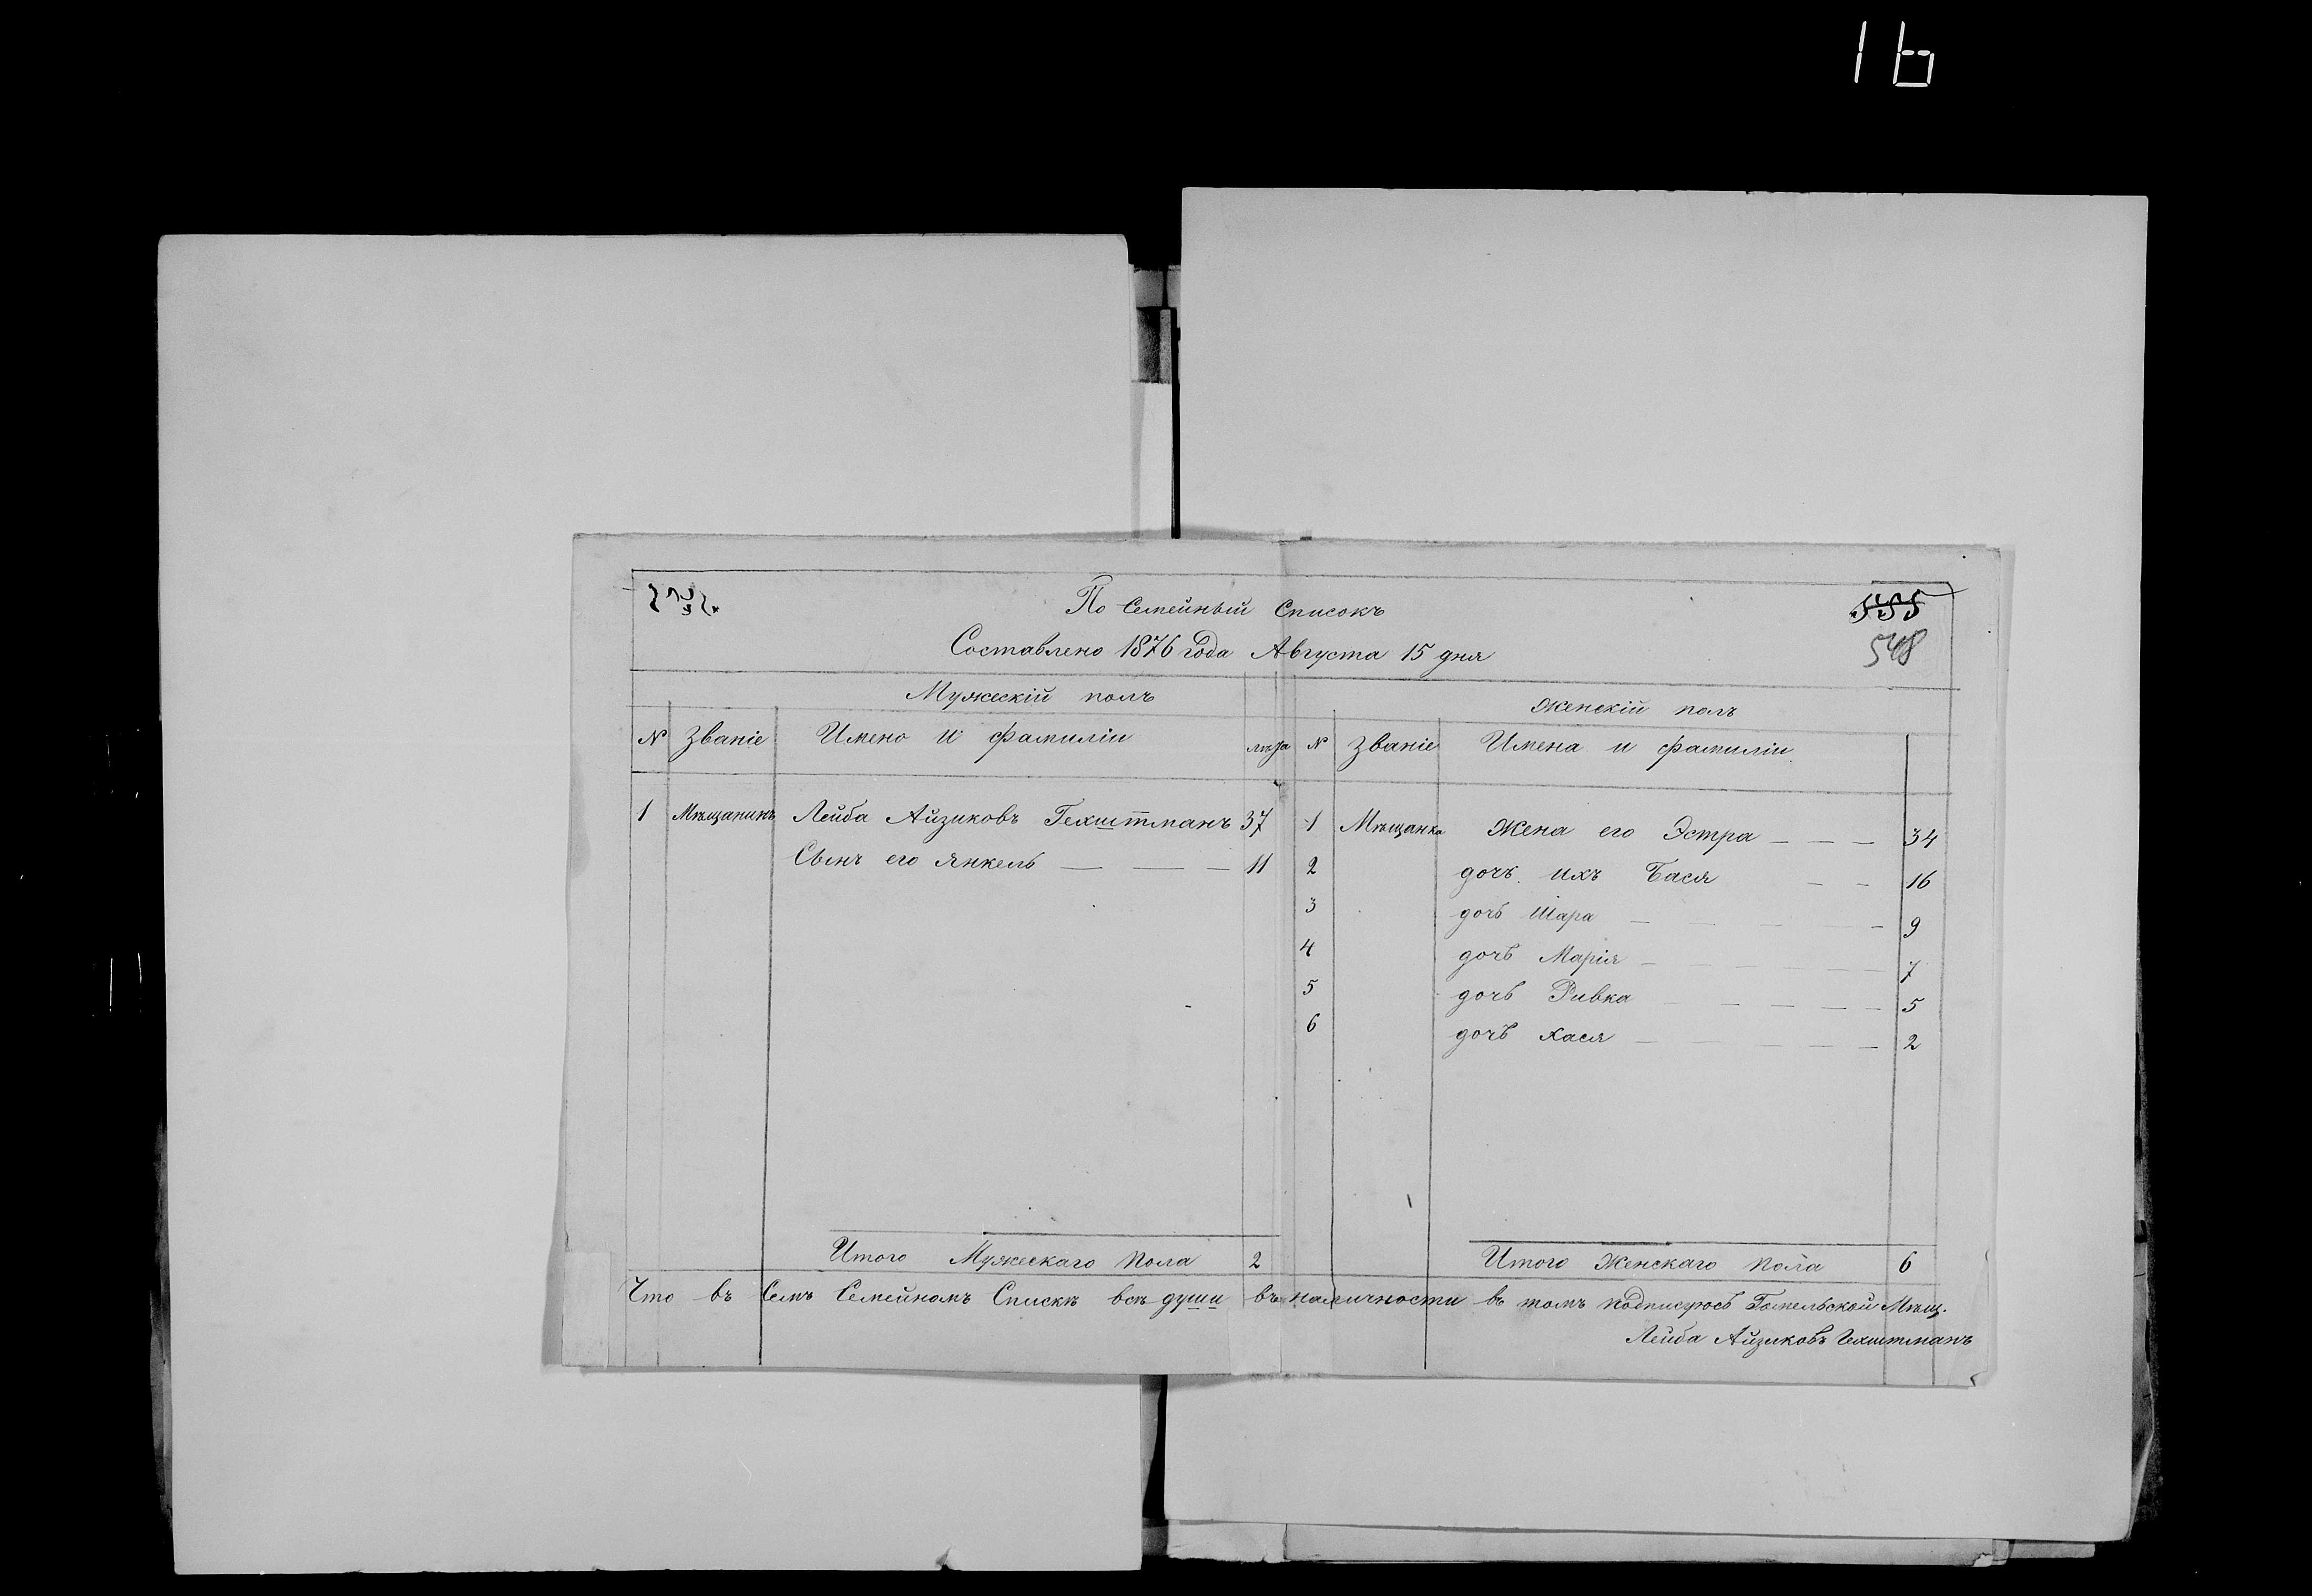 16
По Семейный Списокъ
555
Составлено 1876 года Августа 15 дня
548
Мужескій полъ
Женскій полъ
N Званіе Имено и фамиліи лѣта N Званіе Имена и фамиліи
1 Мѣщанинъ Лейба Айзиковъ Гехштманъ 37 1 Мѣщанка Жена его Эстра 34
Сынъ его Янкель 11 2 дочь ихъ Бася 16
3 дочь Шара 9
4 дочь Марія 7
5 дочь Ривка 5
6 дочь Хася 2
Итого Мужескаго Пола 2 Итого Женскаго Пола 6
Что въ Семъ Семейномъ Спискѣ всѣ души въ наличности въ томъ подписуюсь Гомельской Мѣщ.
Лейба Айзиковъ Гехштманъ